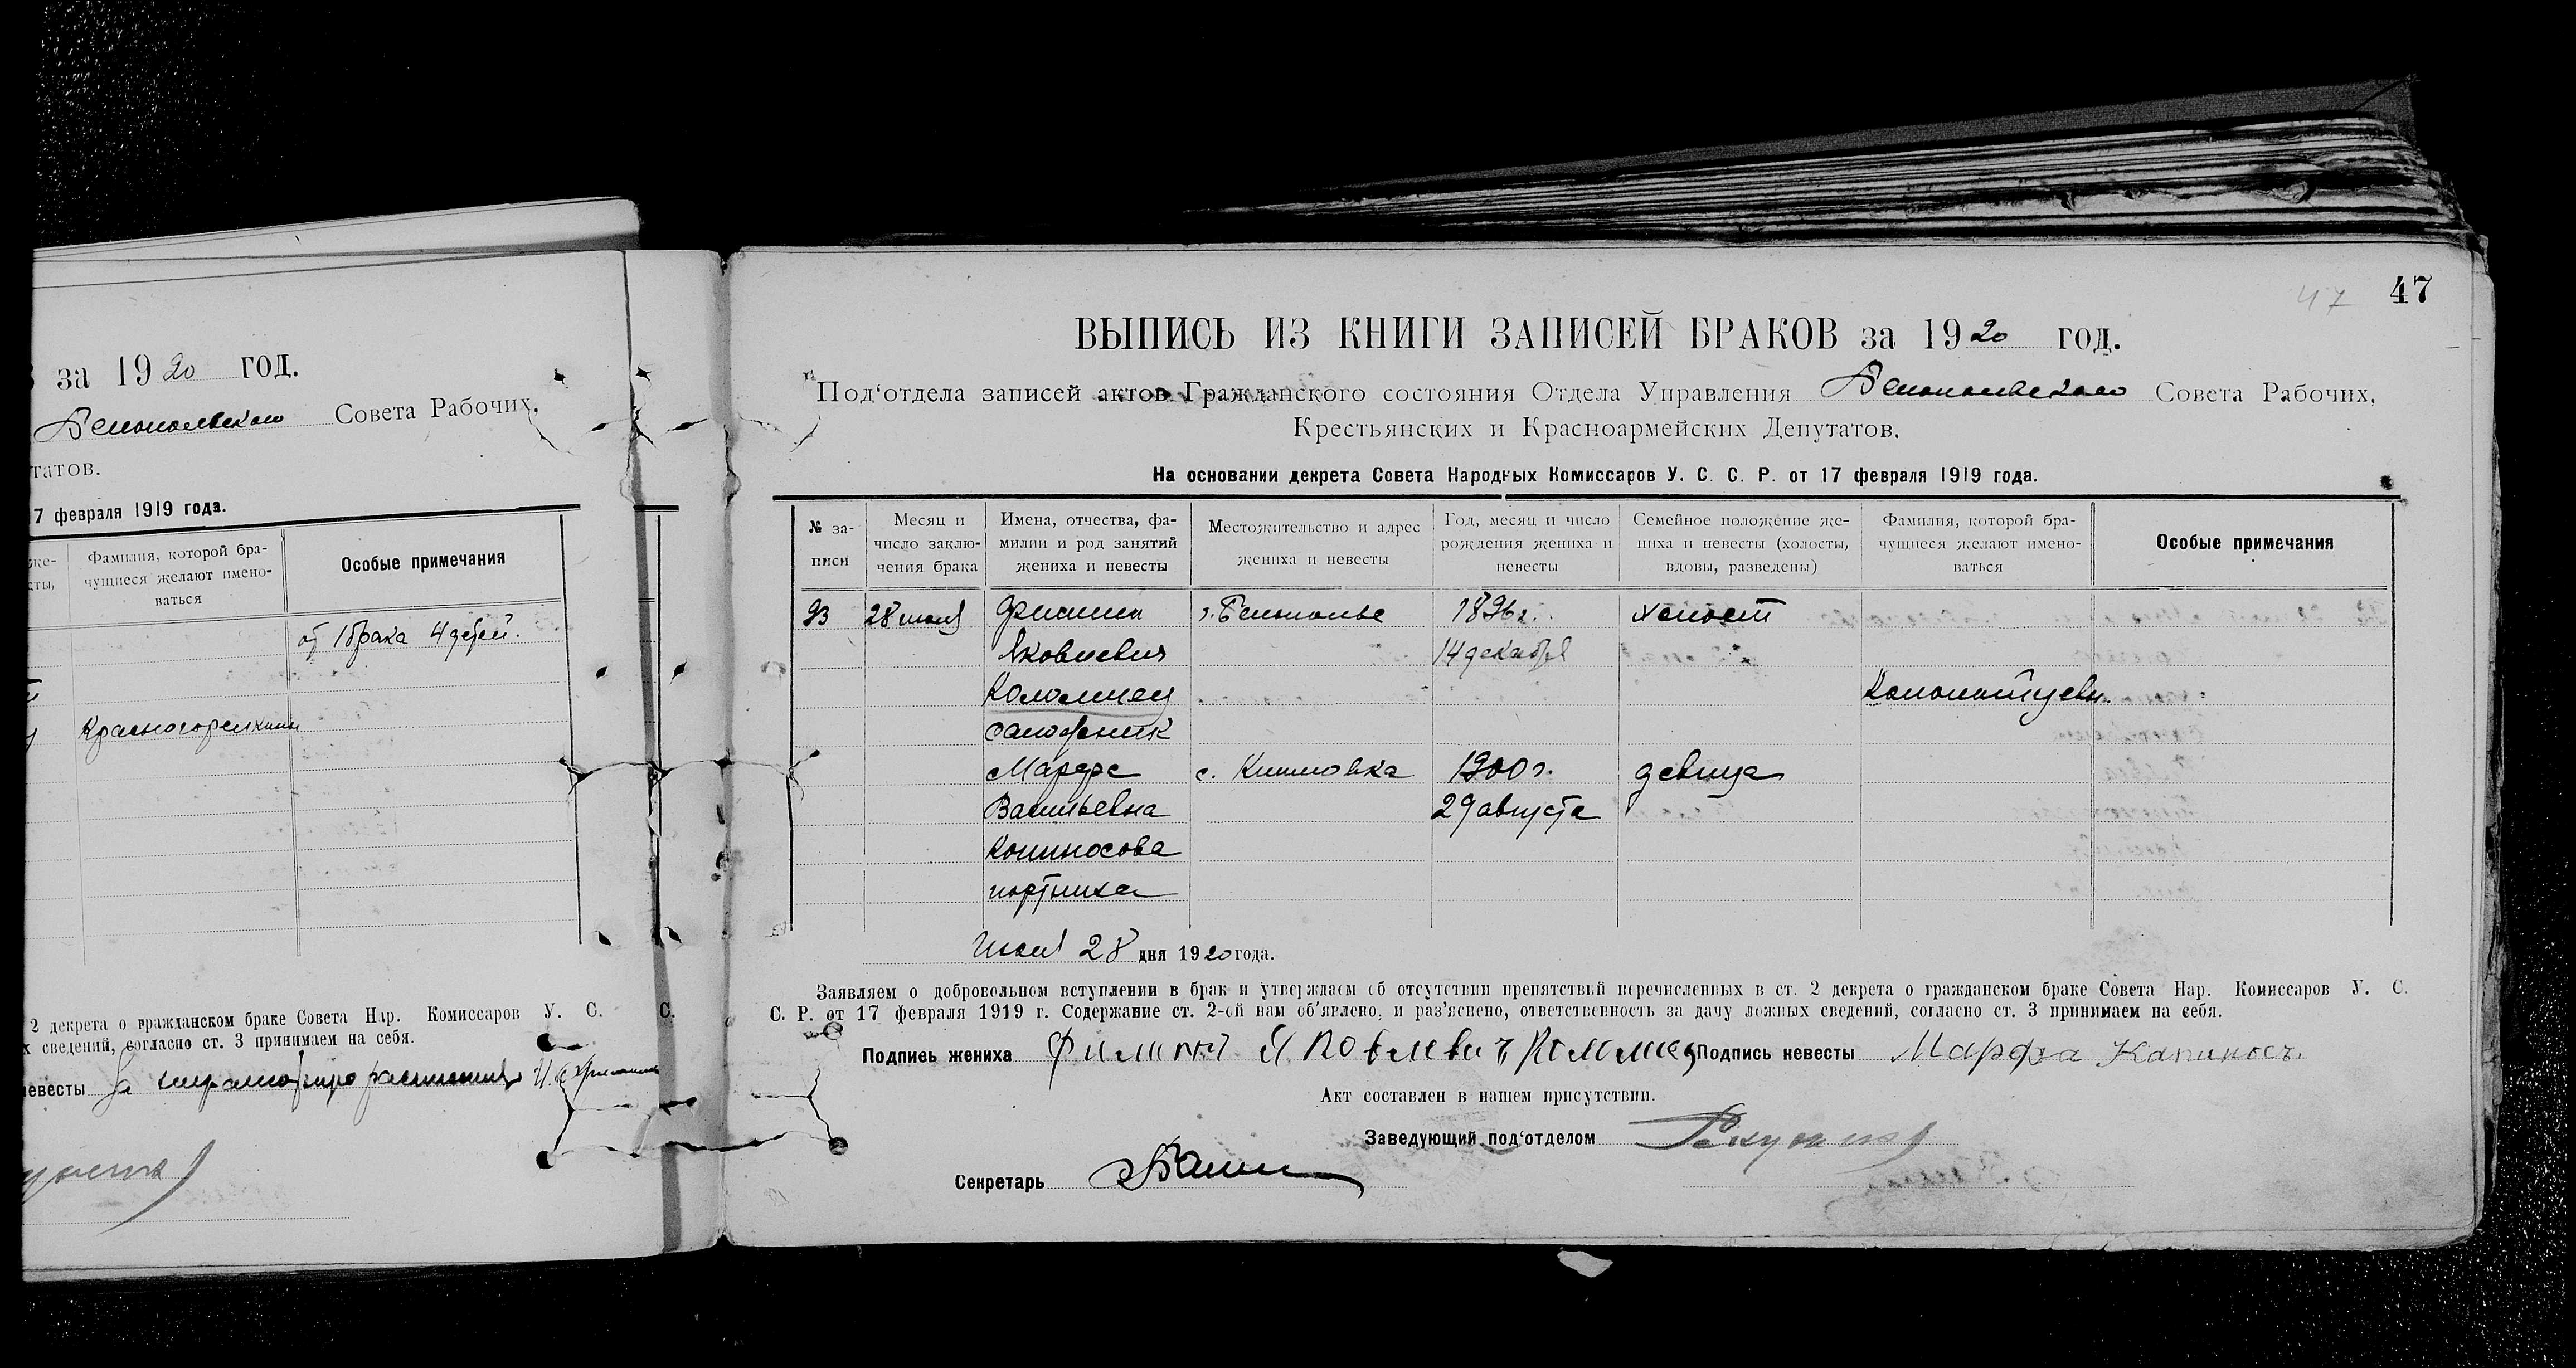 за 1920 год.
Белопольского Совета Рабочих,
татов.
7 февраля 1919 года.
же-
сты,
Фамилия, которой бра-
чущиеся желают имено-
ваться
Особые примечания
от 1 брака 4 детей.
2 декрета о гражданском браке Совета Нар. Комиссаров У. С. С.
х сведений, согласно ст. 3 принимаем на себя.
невесты За
47
47
ВЫПИСЬ ИЗ КНИГИ ЗАПИСЕЙ БРАКОВ за 1920 год.
Под‘отдела записей актов Гражданского состояния Отдела Управления Белопольского Совета Рабочих,
Крестьянских и Красноармейских Депутатов.
На основании декрета Совета Народных Комиссаров У. С. С. Р. от 17 февраля 1919 года.
№ за-
писи
Месяц и
число заклю-
чения брака
Имена, отчества, фа-
милии и род занятий
жениха и невесты
Местожительство и адрес
жениха и невесты
Год, месяц и число
рождения жениха и
невесты
Семейное положение же-
ниха и невесты (холосты,
вдовы, разведены)
Фамилия, которой бра-
чущиеся желают имено-
ваться
Особые примечания
93 28 г. Белополье 1896 г. холост
Яковлевич 14 декабря
Коломиец
сапожник
Марфа с. 1900 г. девица
Васильевна 29 августа
Копиносова
портниха
28 дня 1920 года.
Заявляем о добровольном вступлении в брак и утверждаем об отсутствии препятствий перечисленных в ст. 2 декрета о гражданском браке Совета Нар. Комиссаров У. С.
С. Р. от 17 февраля 1919 г. Содержание ст. 2-ой нам об‘явлено, и раз‘яснено, ответственность за дачу ложных сведений, согласно ст. 3 принимаем на себя.
Подпись жениха Подпись невесты Марфа Капиносъ.
Акт составлен в нашем присутствии.
Заведующий под‘отделом
Секретарь